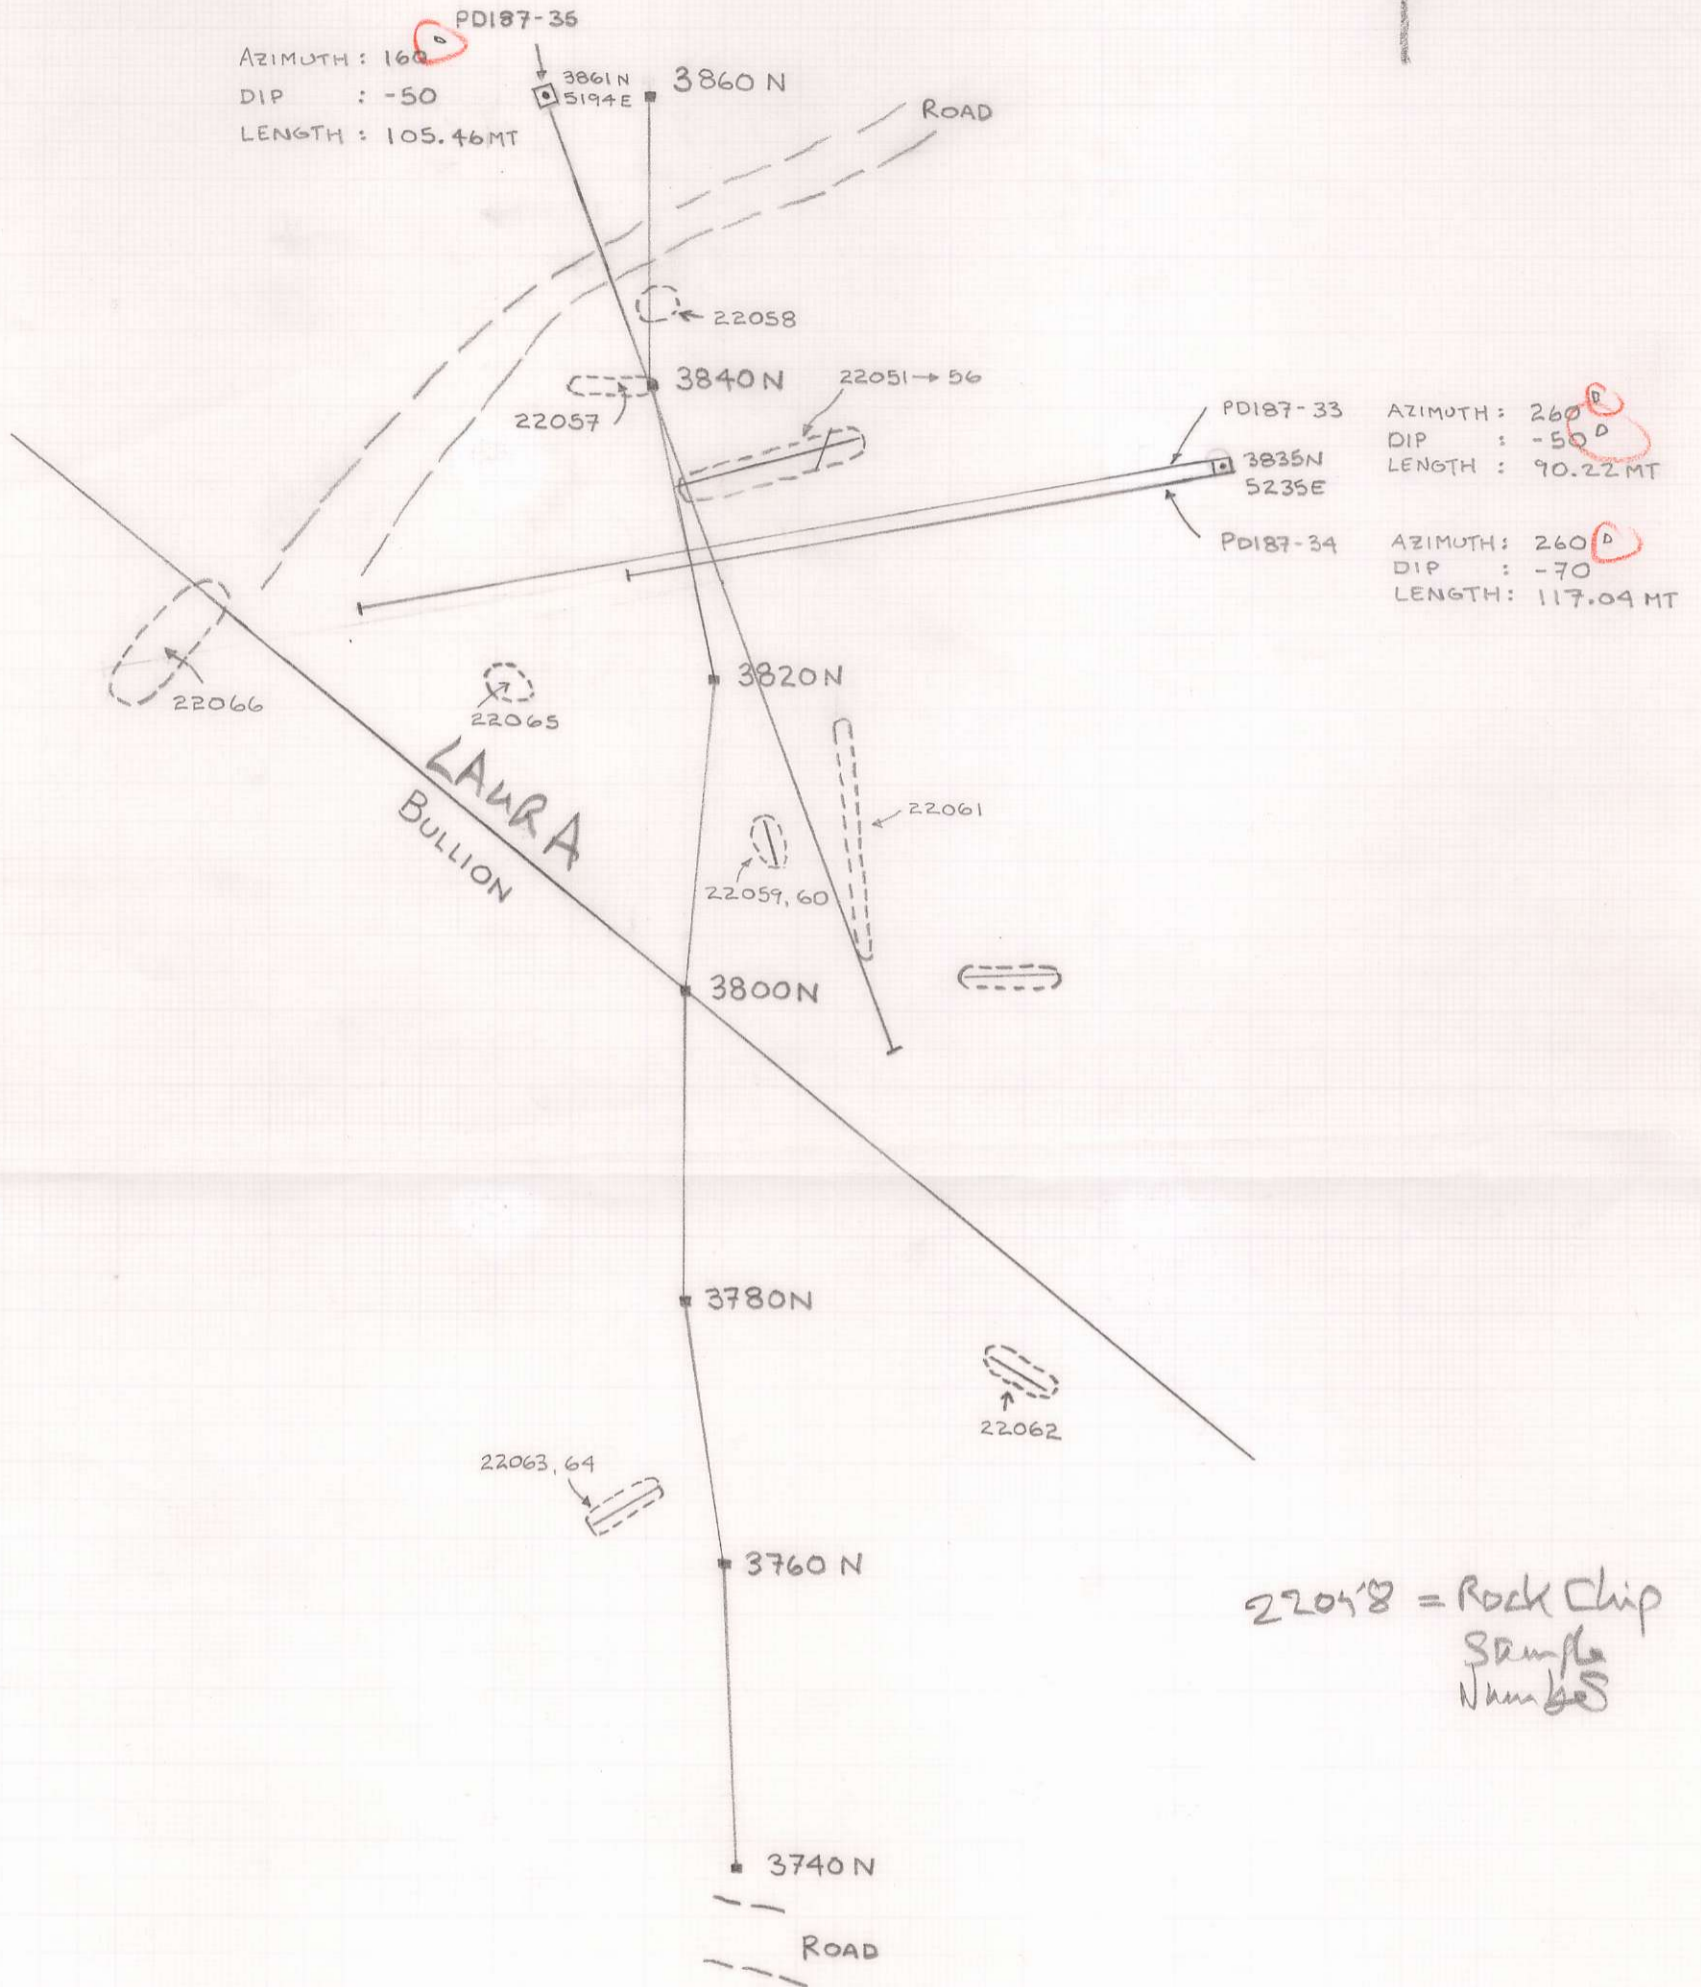 PDI87-35
AZIMUTH : 160°
DIP : -50
LENGTH : 105.46 MT
3861 N
5194 E
3860 N
ROAD
22058
3840 N
22057
22051 → 56
PDI87-33
AZIMUTH : 260°
DIP : -50°
LENGTH : 90.22 MT
3835N
5235E
PDI87-34
AZIMUTH : 260°
DIP : -70
LENGTH : 117.04 MT
22066
22065
3820 N
LAURA
BULLION
22061
22059, 60
3800 N
3780N
22062
22063, 64
3760 N
22058 = Rock Chip
Sample
Number
3740 N
ROAD